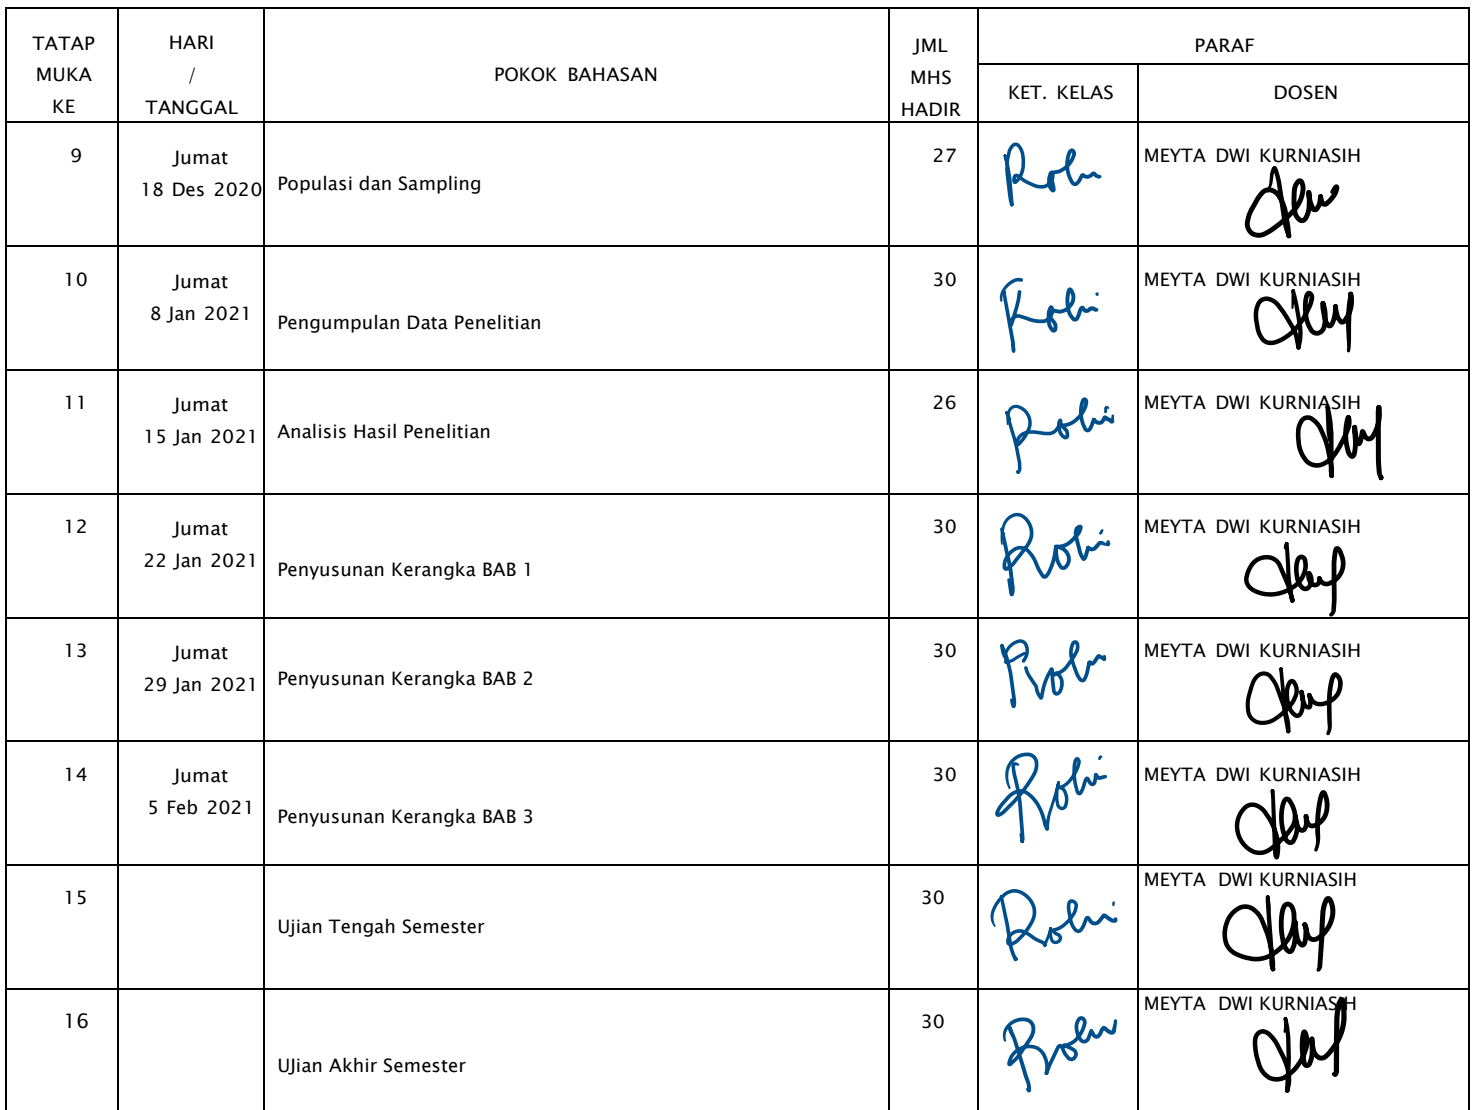 TATAP MUKA KE
HARI / TANGGAL
POKOK BAHASAN
JML MHS HADIR
PARAF
KET. KELAS
DOSEN
9
Jumat
18 Des 2020
Populasi dan Sampling
27
MEYTA DWI KURNIASIH
10
Jumat
8 Jan 2021
Pengumpulan Data Penelitian
30
MEYTA DWI KURNIASIH
11
Jumat
15 Jan 2021
Analisis Hasil Penelitian
26
MEYTA DWI KURNIASIH
12
Jumat
22 Jan 2021
Penyusunan Kerangka BAB 1
30
MEYTA DWI KURNIASIH
13
Jumat
29 Jan 2021
Penyusunan Kerangka BAB 2
30
MEYTA DWI KURNIASIH
14
Jumat
5 Feb 2021
Penyusunan Kerangka BAB 3
30
MEYTA DWI KURNIASIH
15
Ujian Tengah Semester
30
MEYTA DWI KURNIASIH
16
UJian Akhir Semester
30
MEYTA DWI KURNIASIH